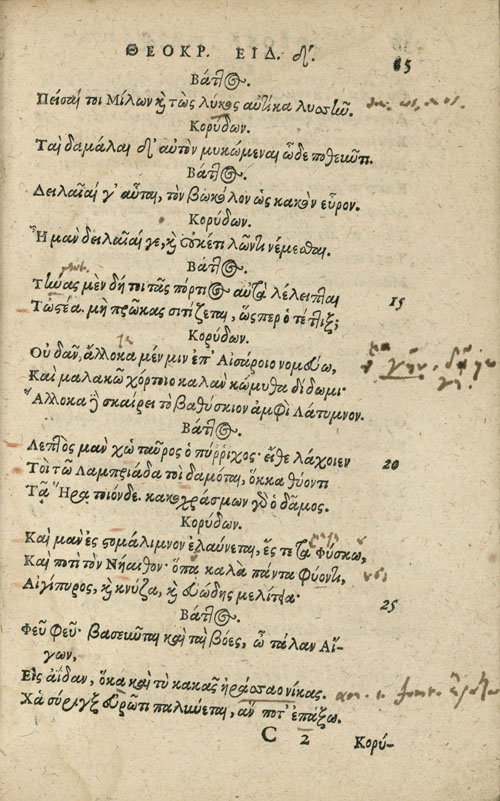 ΘΕΟΚΡ. ΕΙΔ. δ'. 85
Βάτ͂Θ.
Πεῖσαί τοι Μίλων κ̀ τὼς λύκος αὐτίκα λυσσῆν.
Κορύδων.
Ταὶ δαμάλαι δ' αὐτὸν μυκώμεναι ὧδε ποθεῦντι.
Βάτ͂Θ.
Δειλαῖαί γ' αὗται, τὸν βωκόλον ὡς κακὸν εὗρον.
Κορύδων.
Ἦ μὰν δειλαῖαί γε, κ̀ οὐκέτι λῶντι νέμεσθαι.
Βάτ͂Θ.
Τήνας μὲν δή τοι τᾶς πόρτιΘ αὐτὰ λέλειπται 15
Τὠστέα. μὴ πρῶκας σιτίζεται, ὥσπερ ὁ τέττιξ;
Κορύδων.
Οὐ δᾶν, ἄλλοκα μέν μιν ἐπ' Αἰσάροιο νομεύω,
Καὶ μαλακῶ χόρτοιο καλὰν κώμυθα δίδωμι·
Ἄλλοκα δὲ σκαίρει τὸ βαθύσκιον ἀμφὶ Λάτυμνον.
Βάτ͂Θ.
Λεπτὸς μὰν χὠ ταῦρος ὁ πύρριχος· εἴθε λάχοιεν 20
Τοὶ τῶ Λαμπριάδα τοὶ δαμόται, ὅκκα θύοντι
Τᾷ Ἥρᾳ τοιόνδε. κακοχράσμων γὸ ὁ δᾶμος.
Κορύδων.
Καὶ μὰν ἐς στομάλιμνον ἐλαύνεται, ἔς τε τὰ Φύσκω,
Καὶ ποτὶ τὸν Νήαιθον· ὅπα καλὰ πάντα φύοντι,
Αἰγίπυρος, κ̀ κνύζα, κ̀ εὐώδης μελίτεια· 25
Βάτ͂Θ.
Φεῦ φεῦ· βασεῦνται καὶ ταὶ βόες, ὦ τάλαν Αἴ-
γων,
Εἰς ἀΐδαν, ὅκα καὶ τὺ κακᾶς ἠράσσαο νίκας.
Χἁ σύριγξ εὐρῶτι παλύνεται, ἅν ποτ' ἐπάξω.
C 2 Κορύ-